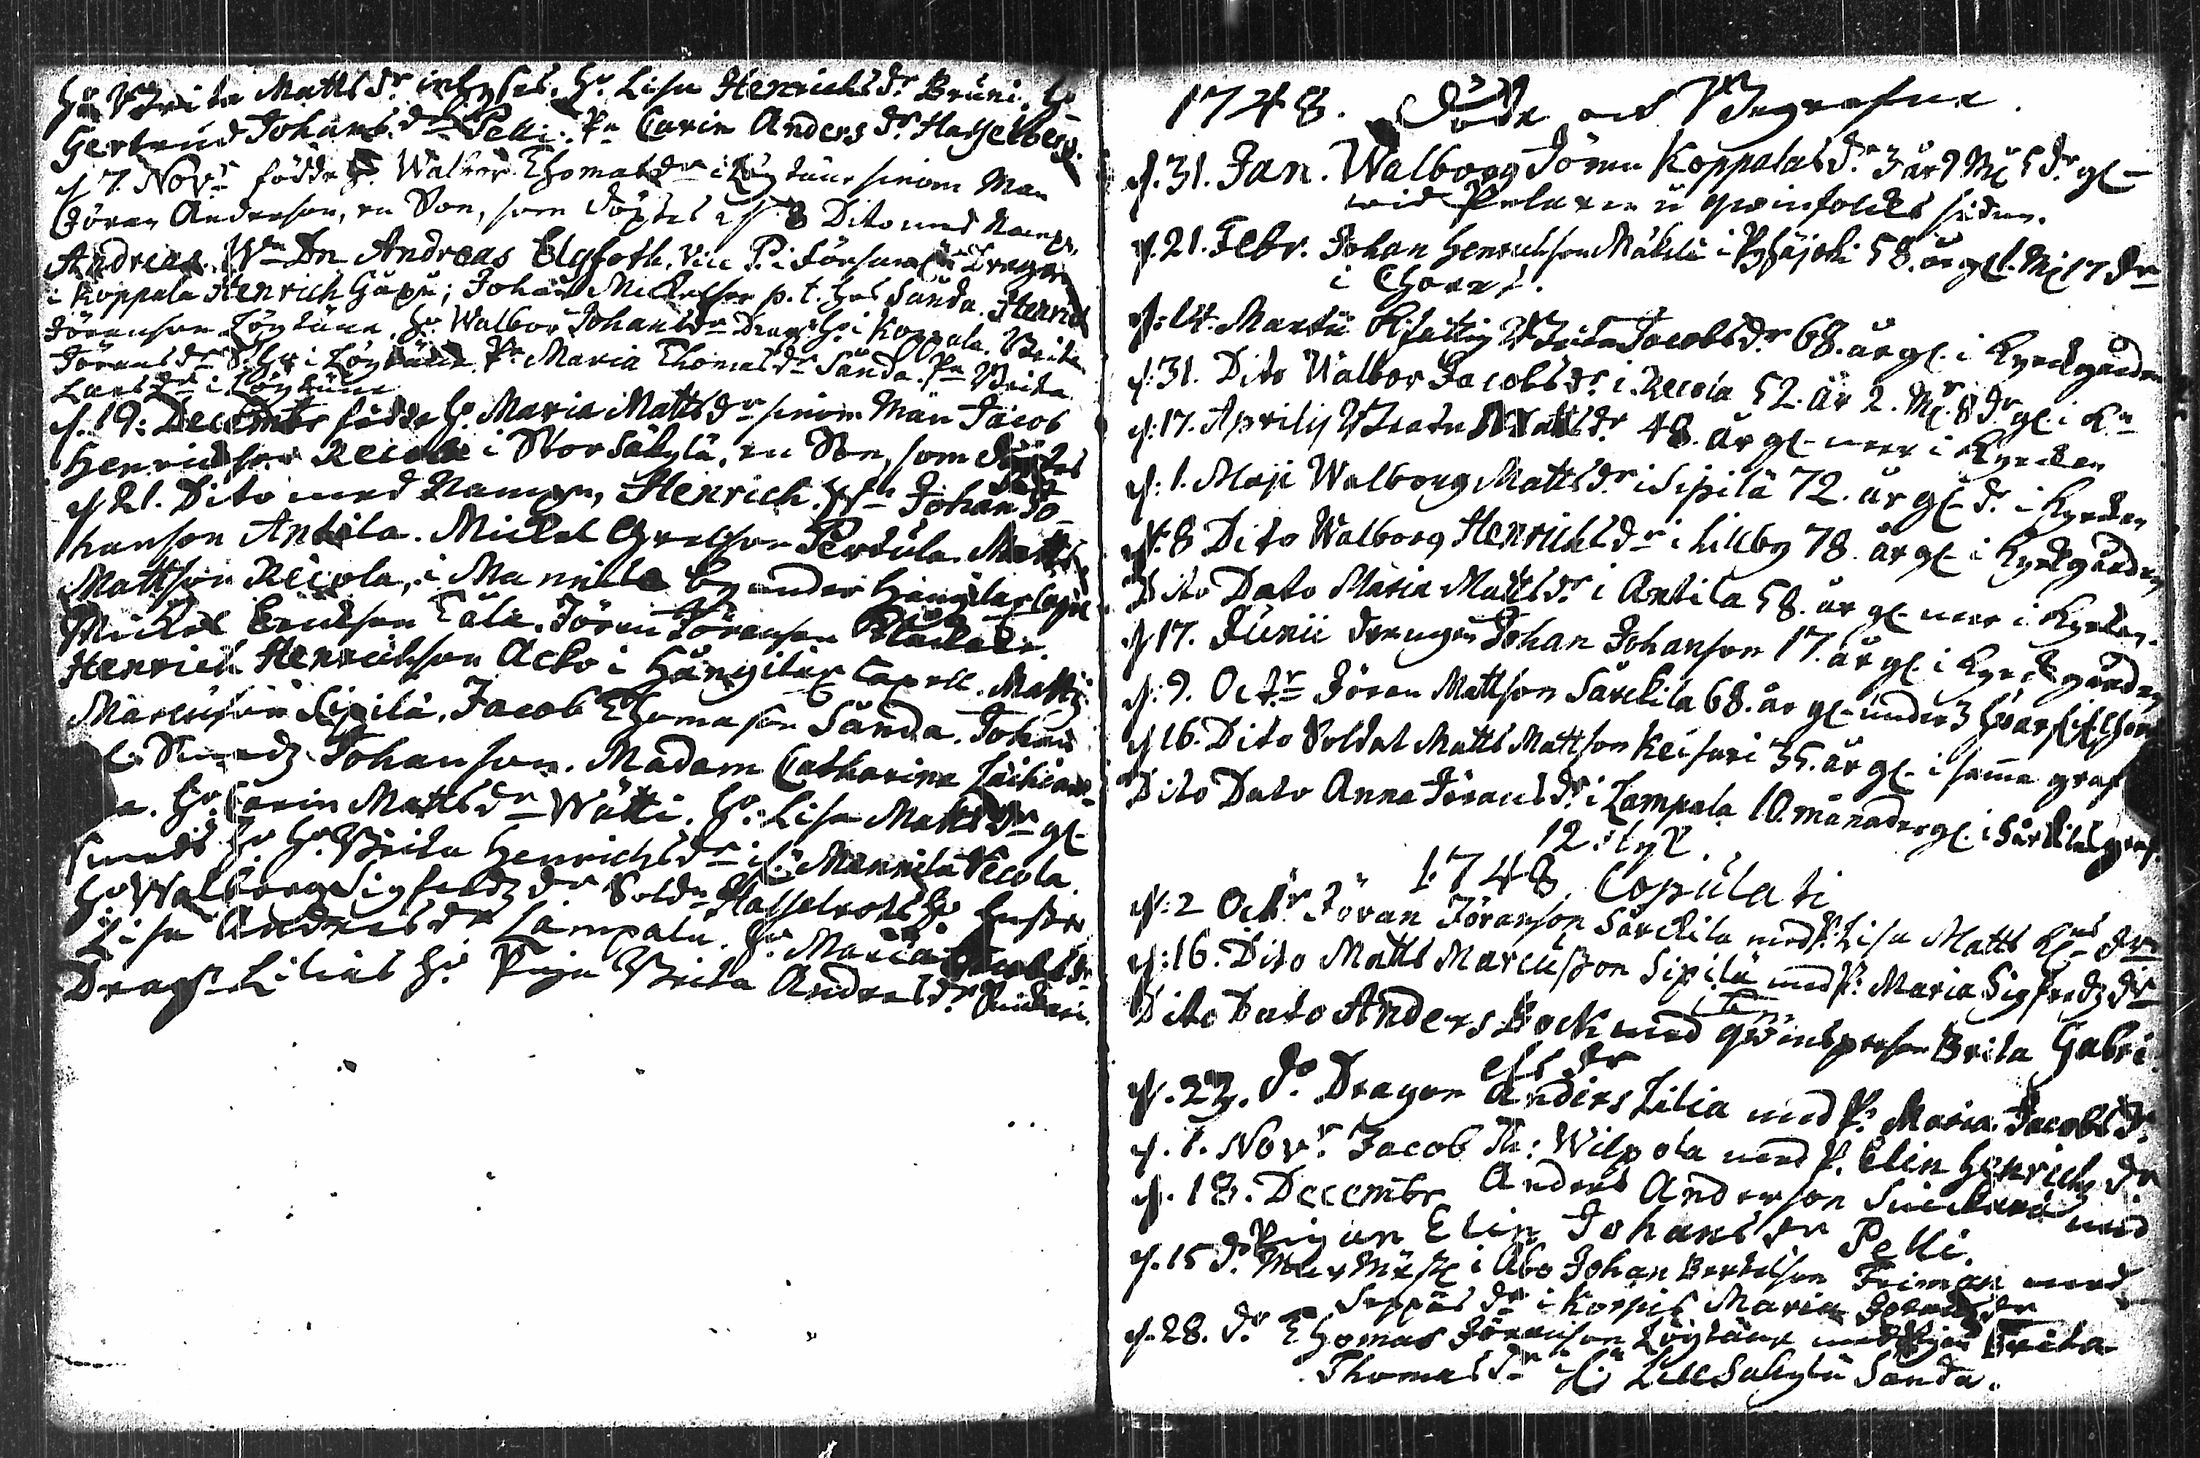 Hu Brita Matts dr inhyses. Hu Lisa Henrichs dr Bruni. Hu
Gertrud Johans dr Pelli. Pn Carin Anders dr Hasselberg.
d 7 Novr födde H. Walbor Thomas dr i Löytäne sinom Man
Jöran Anderson, en Son, som döptes d 8 Dito med Nampn
Andreas. Wn Dn Andreas Elgfoth. Vice P. i Församl: Dragon
i Koppala Henrich Gäpu; Johan Michelson p.t. hos Sanda. Henrich
Jöranson Löytäne. Hu Walbor Johans dr Drag: H: i Koppala. Brita
Jörans dr i Löytäne Pn Maria Thomas dr Sanda. Pn Brita
Lars dr i Löytäne
d. 19: Decembr födde H. Maria Matts dr sinom Man Jacob
Henrichson Recola i Stor Säkylä, en Son, som döptes
d 21. Dito med Nampn, Henrich. Wn Johan Jo-
hanson Antila. Michel Grelsson Perdula. Matts
Mattson Recola, i Mannila by under Hångilax Capell
Michel Erichson Tåle. Jöran Jöranson
Henrich Henrichson Acko i Hångilax Capell. Matts
Marcusson Sipilä. Jacob Thomason Sanda. Johan
Smeds Johanson. Madam Catharina
H. Carin Matts dr Wätti. H. Lisa Matts dr gl
Smeds H. Brita Henrichs dr i Mannila Recola.
H. Walborg Sigfreds dr Soldn Hasselrots H.
Lisa Anders dr Lampala. H. Maria Jacobs dr
Drag: Lilias H. Piga Brita Anders dr Suickari.
1748. Döde och Begrafne.
d. 31. Jan. Walborg Jöran Koppalas dr 3 år 9 M: 5 d: gl
wid Pelaren å qwinfolcks sidan.
d. 21. Febr. Johan Henrichson Mäkelä i Pyhäjoki 58. år gl. 1. M: 17 dr
i Choret.
d. 14. Martii Brita Jacobs dr 68. år gl. i Kyrckgården
d: 31. Dito Walbor Jacobs dr i Recola 52. år 2. M: 8 dr gl. i Kn
d: 17. Aprilis Beata Matts dr 48. år gl. neer i Kyrckan
d: 1. Maji Walborg Matts dr i Sipilä 72. år gl. d. i Kyrckan
d: 8 Dito Walborg Henrichs dr i Lillby 78. år gl. i Kyrckgården
Dito Dato Maria Matts dr i Antila 58. år gl. neer i Kyrckan.
d 17. Junii drengen Johan Johanson 17. år gl. i Kyrckgården
d: 9. Octr Jöran Mattson Särkilä 68. år gl. under
d 16. Dito Soldat Matts Mattson Keisari 35. år gl. i samma graf
Dito Dato Anna Jörans dr i Lampala 10. månader gl. i Särkiläs graf.
12. styk.
1748. Copulati
d: 2 Octr Jöran Jöranson Särkilä med P. Lisa Matts dr
d: 16. Dito Matts Marcusson Sipilä med P. Maria Sigfreds dr
Dito Dato Anders Bock med qwinsperson Brita Gabri-
els dr
d. 23. do Dragon Anders Lilia med P. Maria Jacobs dr
d. 1. Novr Jacob Th: Wilpola med P. Elin Henrichs dr
d. 18. Decembr Anders Anderson Suickari med
Pigan Elin Johans dr Pelli.
d. 15 do i Åbo Johan Bertelson Friman med
Seppäs dr i Korpis Maria Johans dr
d. 28. do Thomas Jöranson Löytäne med Pigan Brita
Thomas dr i Lill Säkylä Sanda.